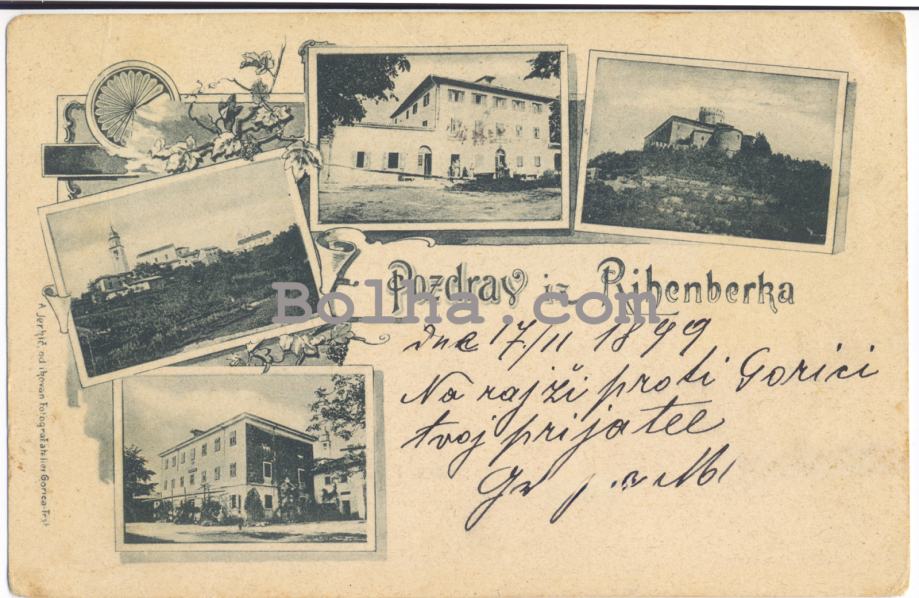 Pozdrav iz Rihenberka
Bolha.com
dne 17/11 1899
Na rajži proti Gorici
tvoj prijatel
A. Jerkič, Fotograf atelier Gorica-Trst